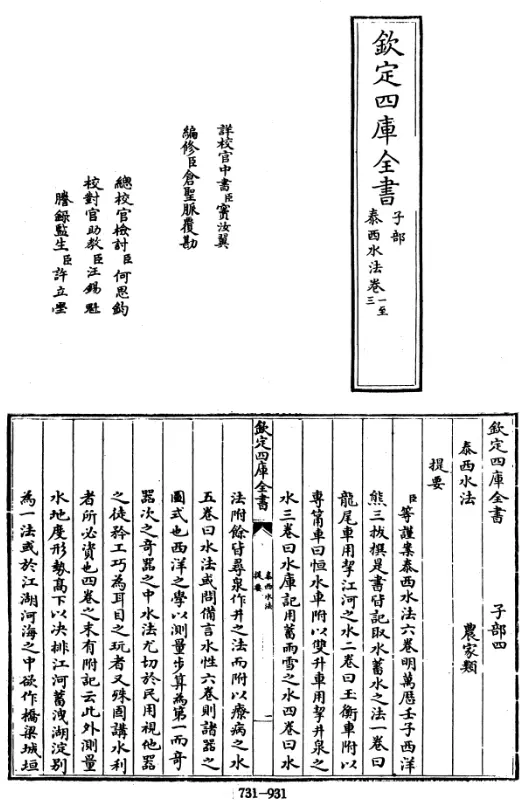 欽定四庫全書
子部
泰西水法卷一至三
詳校官中書臣竇汝翼
編修臣倉聖脈覆勘
總校官檢討臣何思鈞
校對官助教臣汪錫魁
謄錄監生臣許立堂
欽定四庫全書 子部四
泰西水法 農家類
提要
臣等謹案泰西水法六卷明萬厯壬子西洋
熊三拔撰是書皆記取水蓄水之法一卷曰
龍尾車用挈江河之水二卷曰玉衡車附以
專筩車曰恒水車附以雙升車用挈井泉之
水三卷曰水庫記用蓄雨雪之水四卷曰水
欽定四庫全書
泰西水法
提要
一
法附餘皆尋泉作井之法而附以療病之水
五卷曰水法或問備言水性六卷則諸器之
圖式也西洋之學以測量步算為第一而奇
器次之奇器之中水法尤切於民用視他器
之徒矜工巧為耳目之玩者又殊固講水利
者所必資也四卷之末有附記云此外測量
水地度形勢髙下以决排江河蓄洩湖淀别
為一法或於江湖河海之中欲作橋梁城垣
731-931